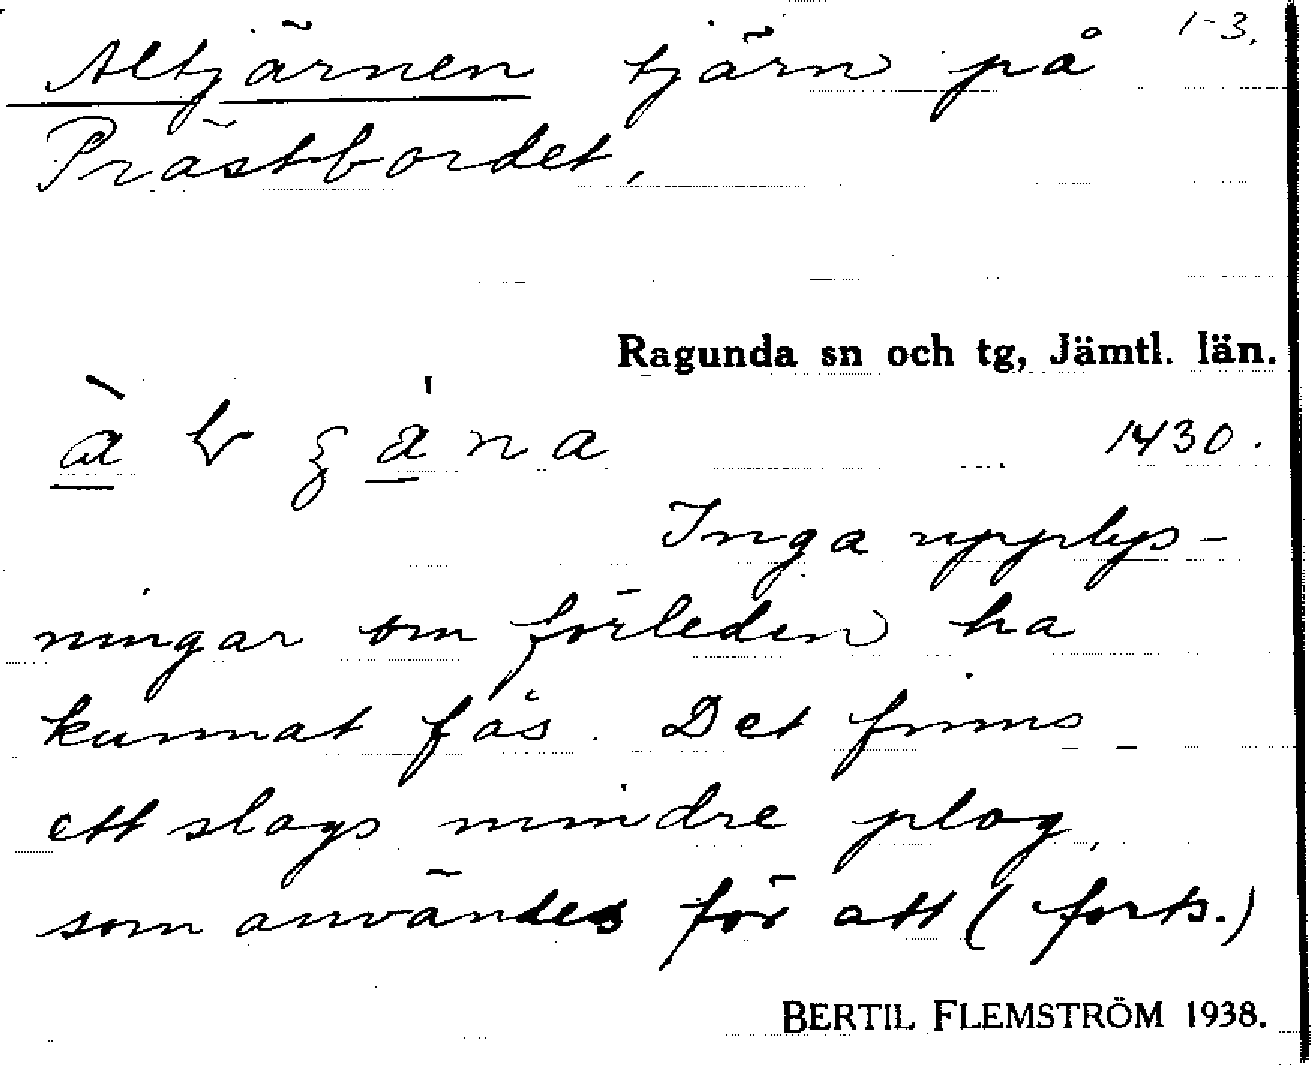 1-3.
Altjärnen tjärn på
Prästbordet.
Ragunda sn och tg, Jämtl. län.
1430.
Inga upplys-
ningar om förleden ha
kunnat fås. Det finns
ett slags mindre plog,
som användes för att (forts.)
BERTIL FLEMSTRÖM 1938.